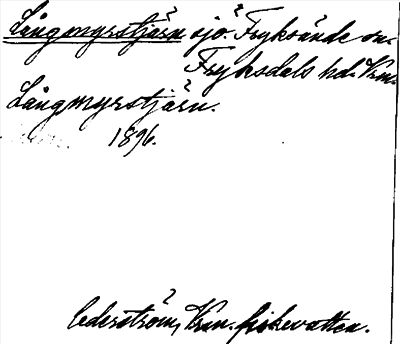 Långmyrstjärn sjö. Fryksände sn.
Fryksdals hd. Vrm.
Långmyrstjärn.
1896.
Cederström, Vrm. fiskevatten.